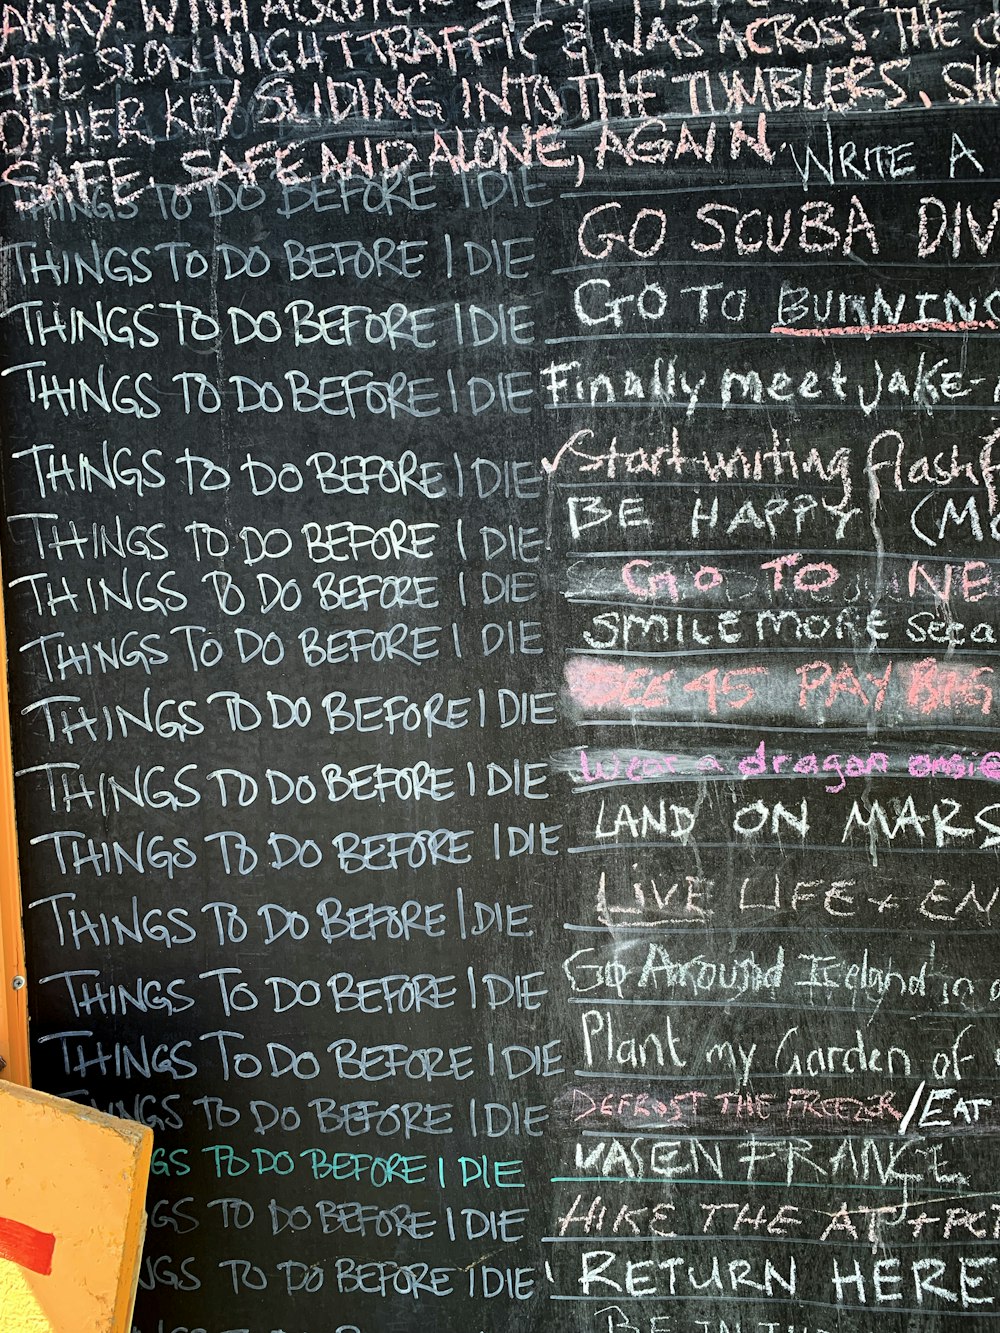 AWAY WITH
THE SLOW NIGHT TRAFFIC & WAS ACROSS. THE
OF HER KEY SLIDING INTO THE TUMBLERS,
SAFE. SAFE AND ALONE, AGAIN.
THINGS TO DO BEFORE I DIE WRITE A
THINGS TO DO BEFORE I DIE GO SCUBA DIV
THINGS TO DO BEFORE I DIE GO TO BURNING
THINGS TO DO BEFORE I DIE Finally meet Jake-
THINGS TO DO BEFORE I DIE Start writing flash
THINGS TO DO BEFORE I DIE BE HAPPY
THINGS TO DO BEFORE I DIE GO TO NE
THINGS TO DO BEFORE I DIE SMILE MORE
THINGS TO DO BEFORE I DIE SEE 45 PAY
THINGS TO DO BEFORE I DIE Wear a dragon onsie
THINGS TO DO BEFORE I DIE LAND ON MARS
THINGS TO DO BEFORE I DIE LIVE LIFE + EN
THINGS TO DO BEFORE I DIE Go Around Iceland in a
THINGS TO DO BEFORE I DIE Plant my Garden of
NGS TO DO BEFORE I DIE DEFROST THE FREEZER/EAT
GS TO DO BEFORE I DIE EN FRANCE
GS TO DO BEFORE I DIE HIKE THE AT + PC
NGS TO DO BEFORE I DIE! RETURN HERE
BE IN